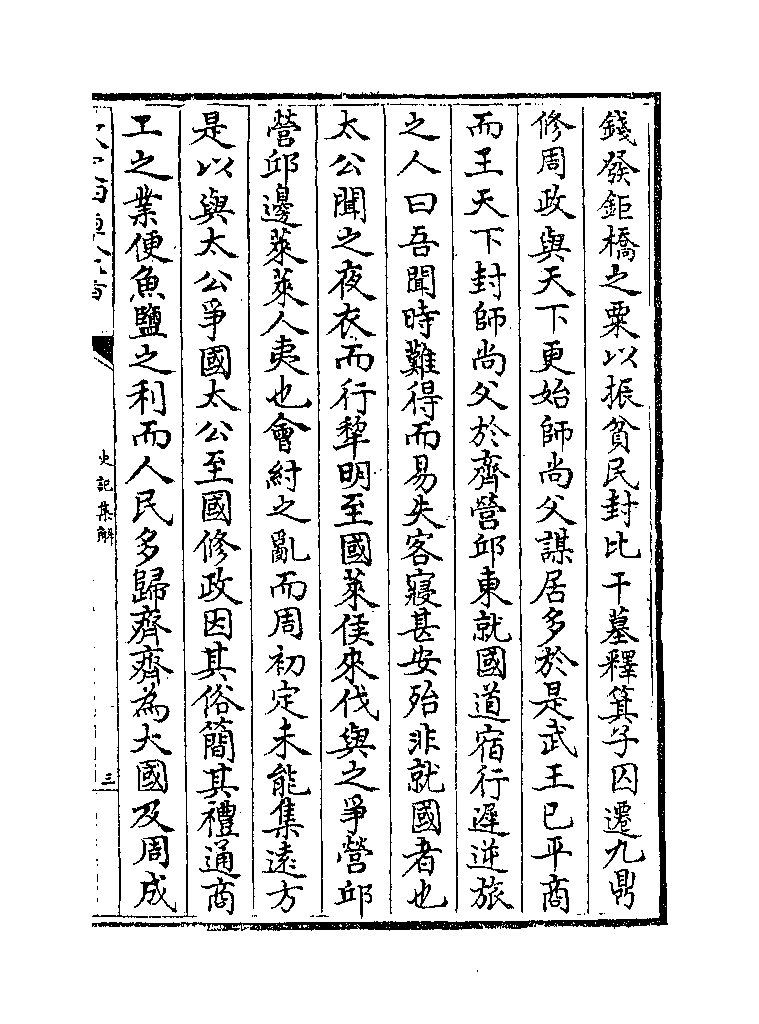 錢發鉅橋之粟以振貧民封比干墓釋箕子囚遷九鼎
修周政與天下更始師尚父謀居多於是武王已平商
而王天下封師尚父於齊營邱東就國道宿行遲逆旅
之人曰吾聞時難得而易失客寢甚安殆非就國者也
太公聞之夜衣而行犂明至國萊侯來伐與之爭營邱
營邱邊萊萊人夷也會紂之亂而周初定未能集遠方
是以與太公爭國太公至國修政因其俗簡其禮通商
工之業便魚鹽之利而人民多歸齊齊為大國及周成
史記集解
三